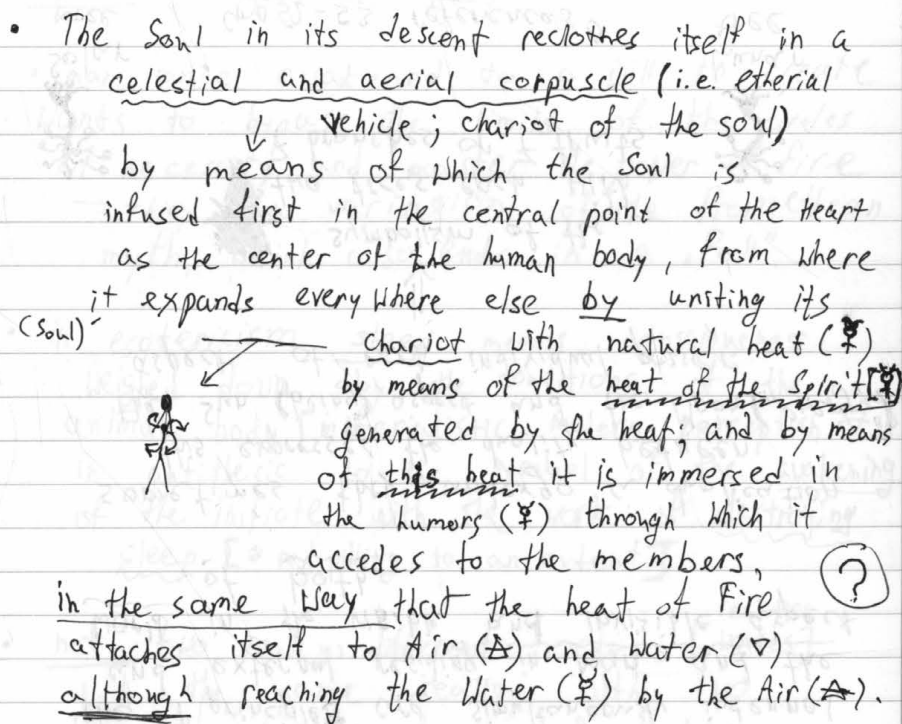 • The Soul in its descent reclothes itself in a
celestial and aerial corpuscle (i.e. etherial
vehicle; chariot of the soul)
by means of which the Soul is
infused first in the central point of the Heart
as the center of the human body, from where
it expands everywhere else by uniting its
(Soul)
chariot with natural heat (☿)
by means of the heat of the Spirit [☿]
generated by the heat; and by means
of this heat it is immersed in
the humors (☿) through which it
accedes to the members,
?
in the same way that the heat of Fire
attaches itself to Air (🜁) and Water (▽)
although reaching the Water (☿) by the Air (🜁).